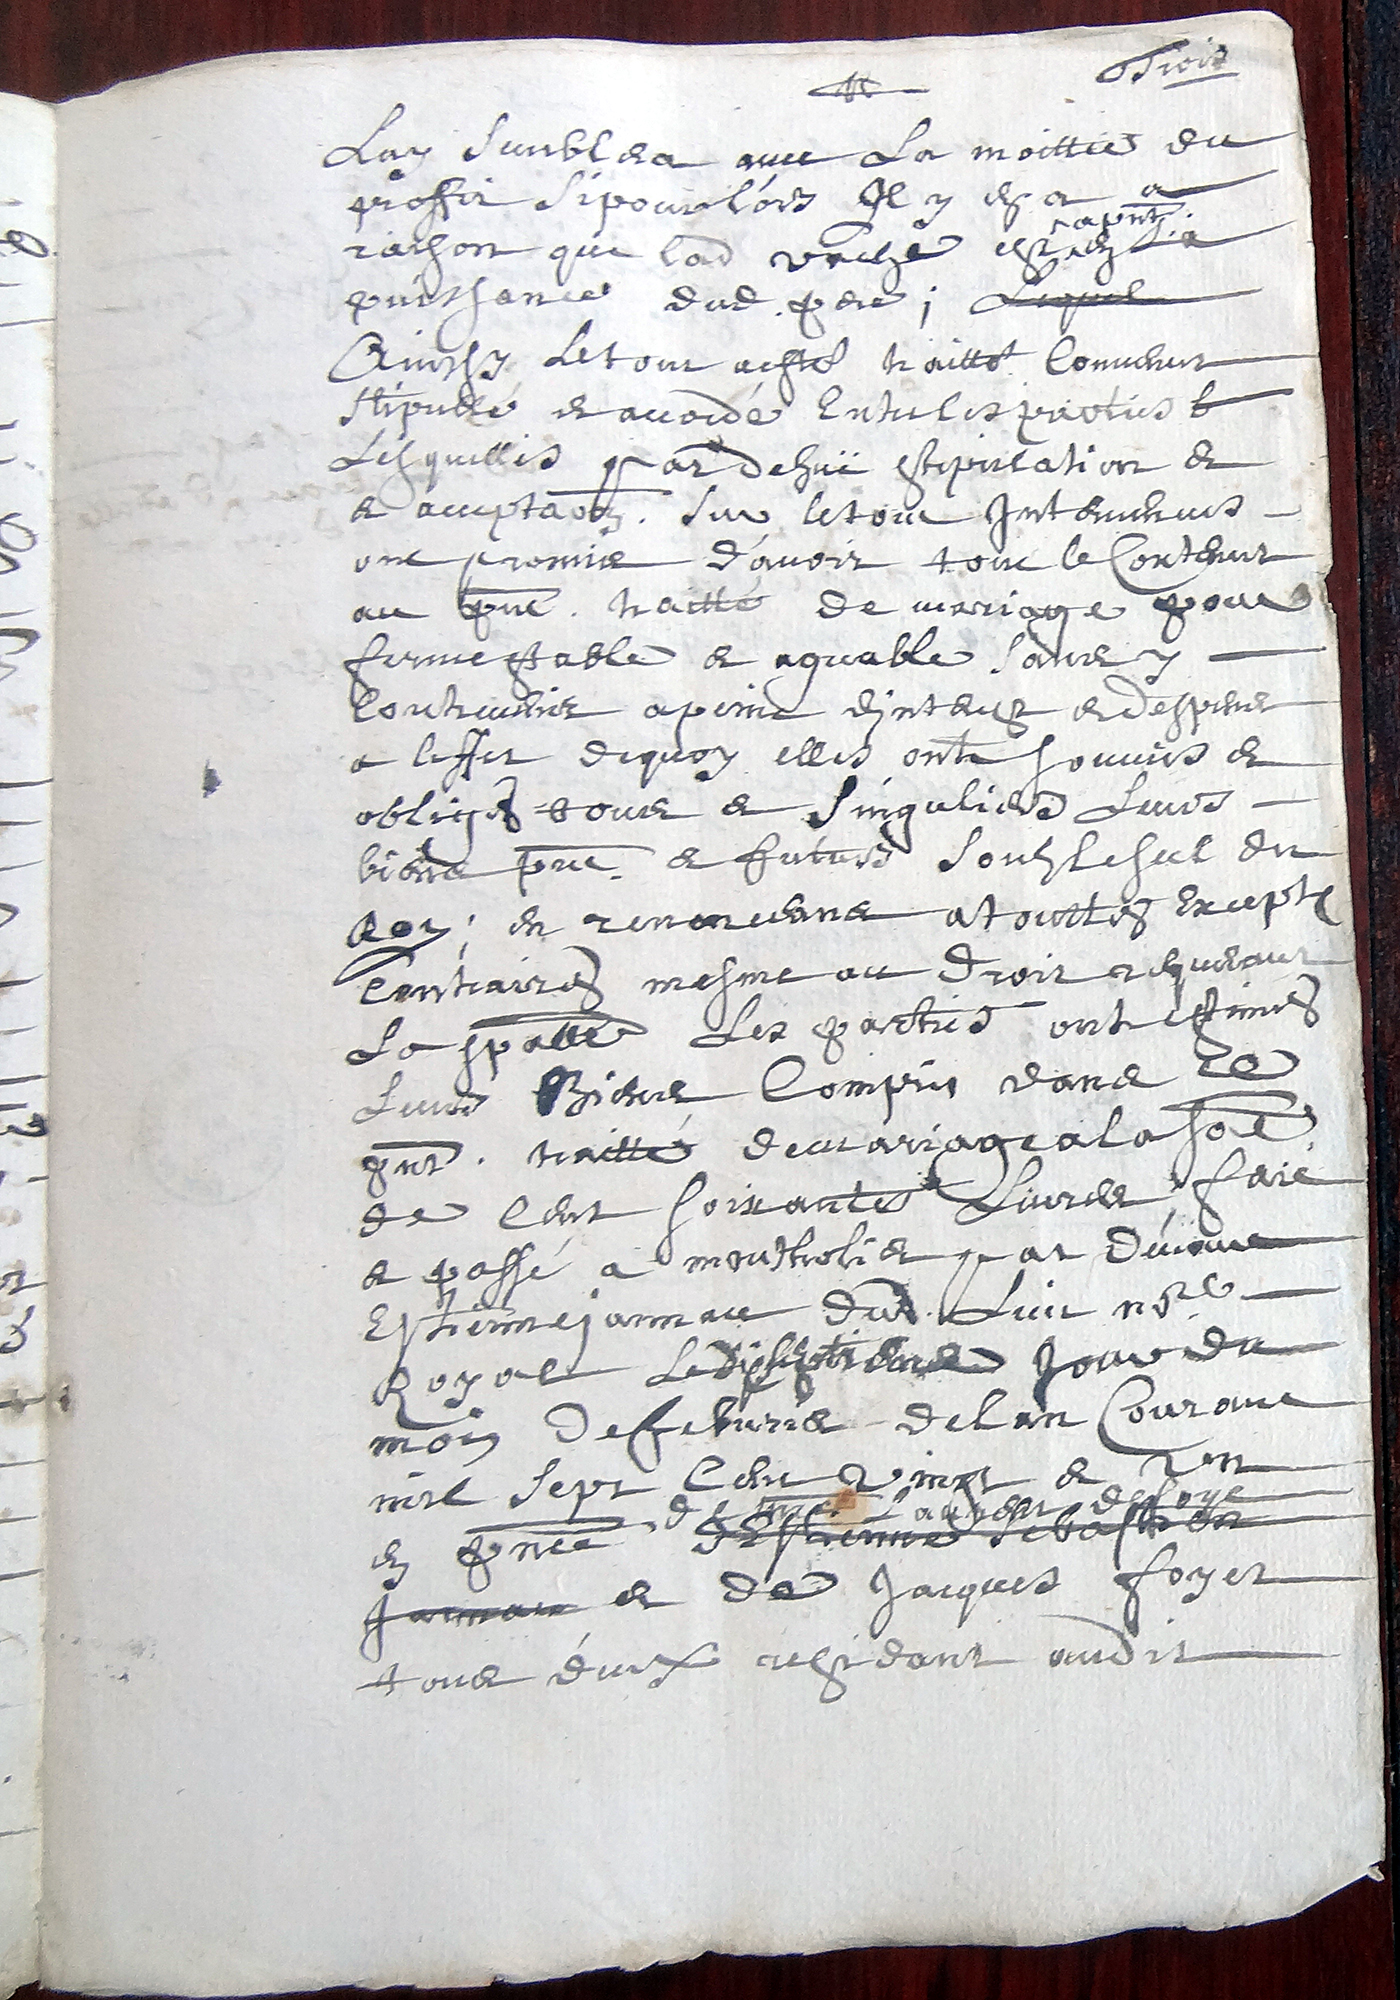 Trois
Luy semblera avec La moittie du
proffit si pour lors Il y en a a
raison que lad vache est apnt. en La
puissance dud. pere ; Lequel
Ainsy Letout a esté traitté Convenut
stipullé et acordé Entre les parties
Lesquelles par dehuë estipulation et
et acceptaon. Sur letout Intervenues
ont promis d'avoir tout le Contenut
au pnt. traitté de mariage pour
ferme stable et agreable sans y
Contrevenir a peine d'jnterez et despens
a leffet dequoy elles ont soumis et
obligés tous et singuliers Leurs
biens pnt. et futurs Soubz le seel du
Roy ; en renoncant a touttes Except
Contraires mesme au Droit requerant
La spalle Les parties ont estimés
Leurs Biens Compris dans ce
pnt. traitté de mariage a la so͞e
de Cent soixante Livres, faic
et passé a par
Estienne Jammau dud. Lieu nre
Royal Le Jour du
mois de febvrie de l an Courant
mil Sept Cent vingt et un
de me. Laurent defoye
en pnce d'Estienne Sebastien
Jammau et de Jacques foyer
tous deux residant audit